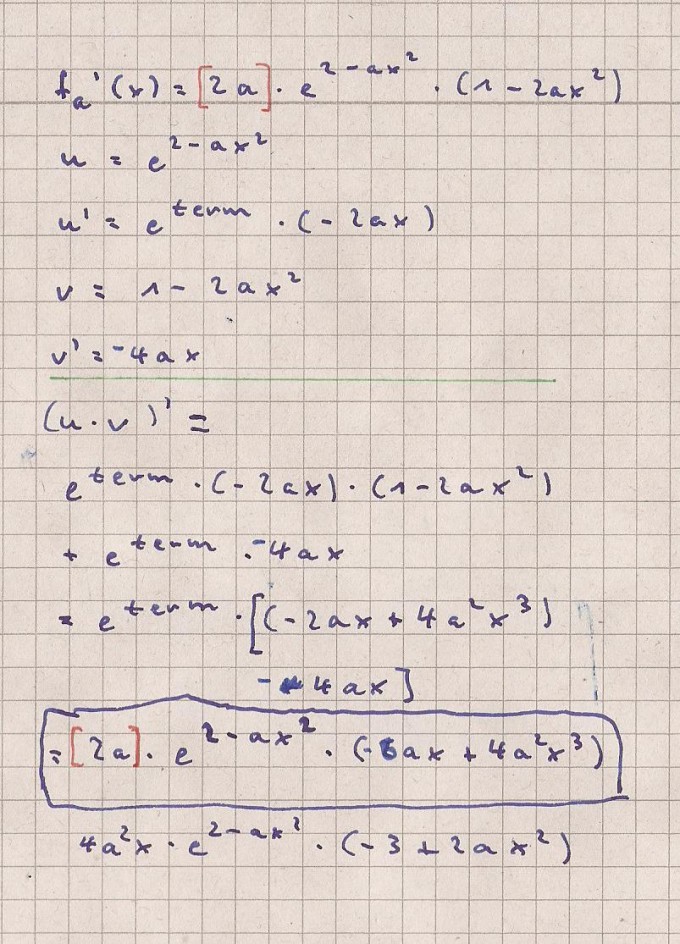 fₐ'(x) = [2a] · e^(2-ax²) · (1 - 2ax²)
u = e^(2-ax²)
u' = e^term · (-2ax)
v = 1 - 2ax²
v' = -4ax
(u·v)' =
e^term · (-2ax) · (1-2ax²)
+ e^term · -4ax
= e^term · [(-2ax + 4a²x³)
- 4ax]
= [2a] · e^(2-ax²) · (-6ax + 4a²x³)
4a²x · e^(2-ax²) · (-3 + 2ax²)